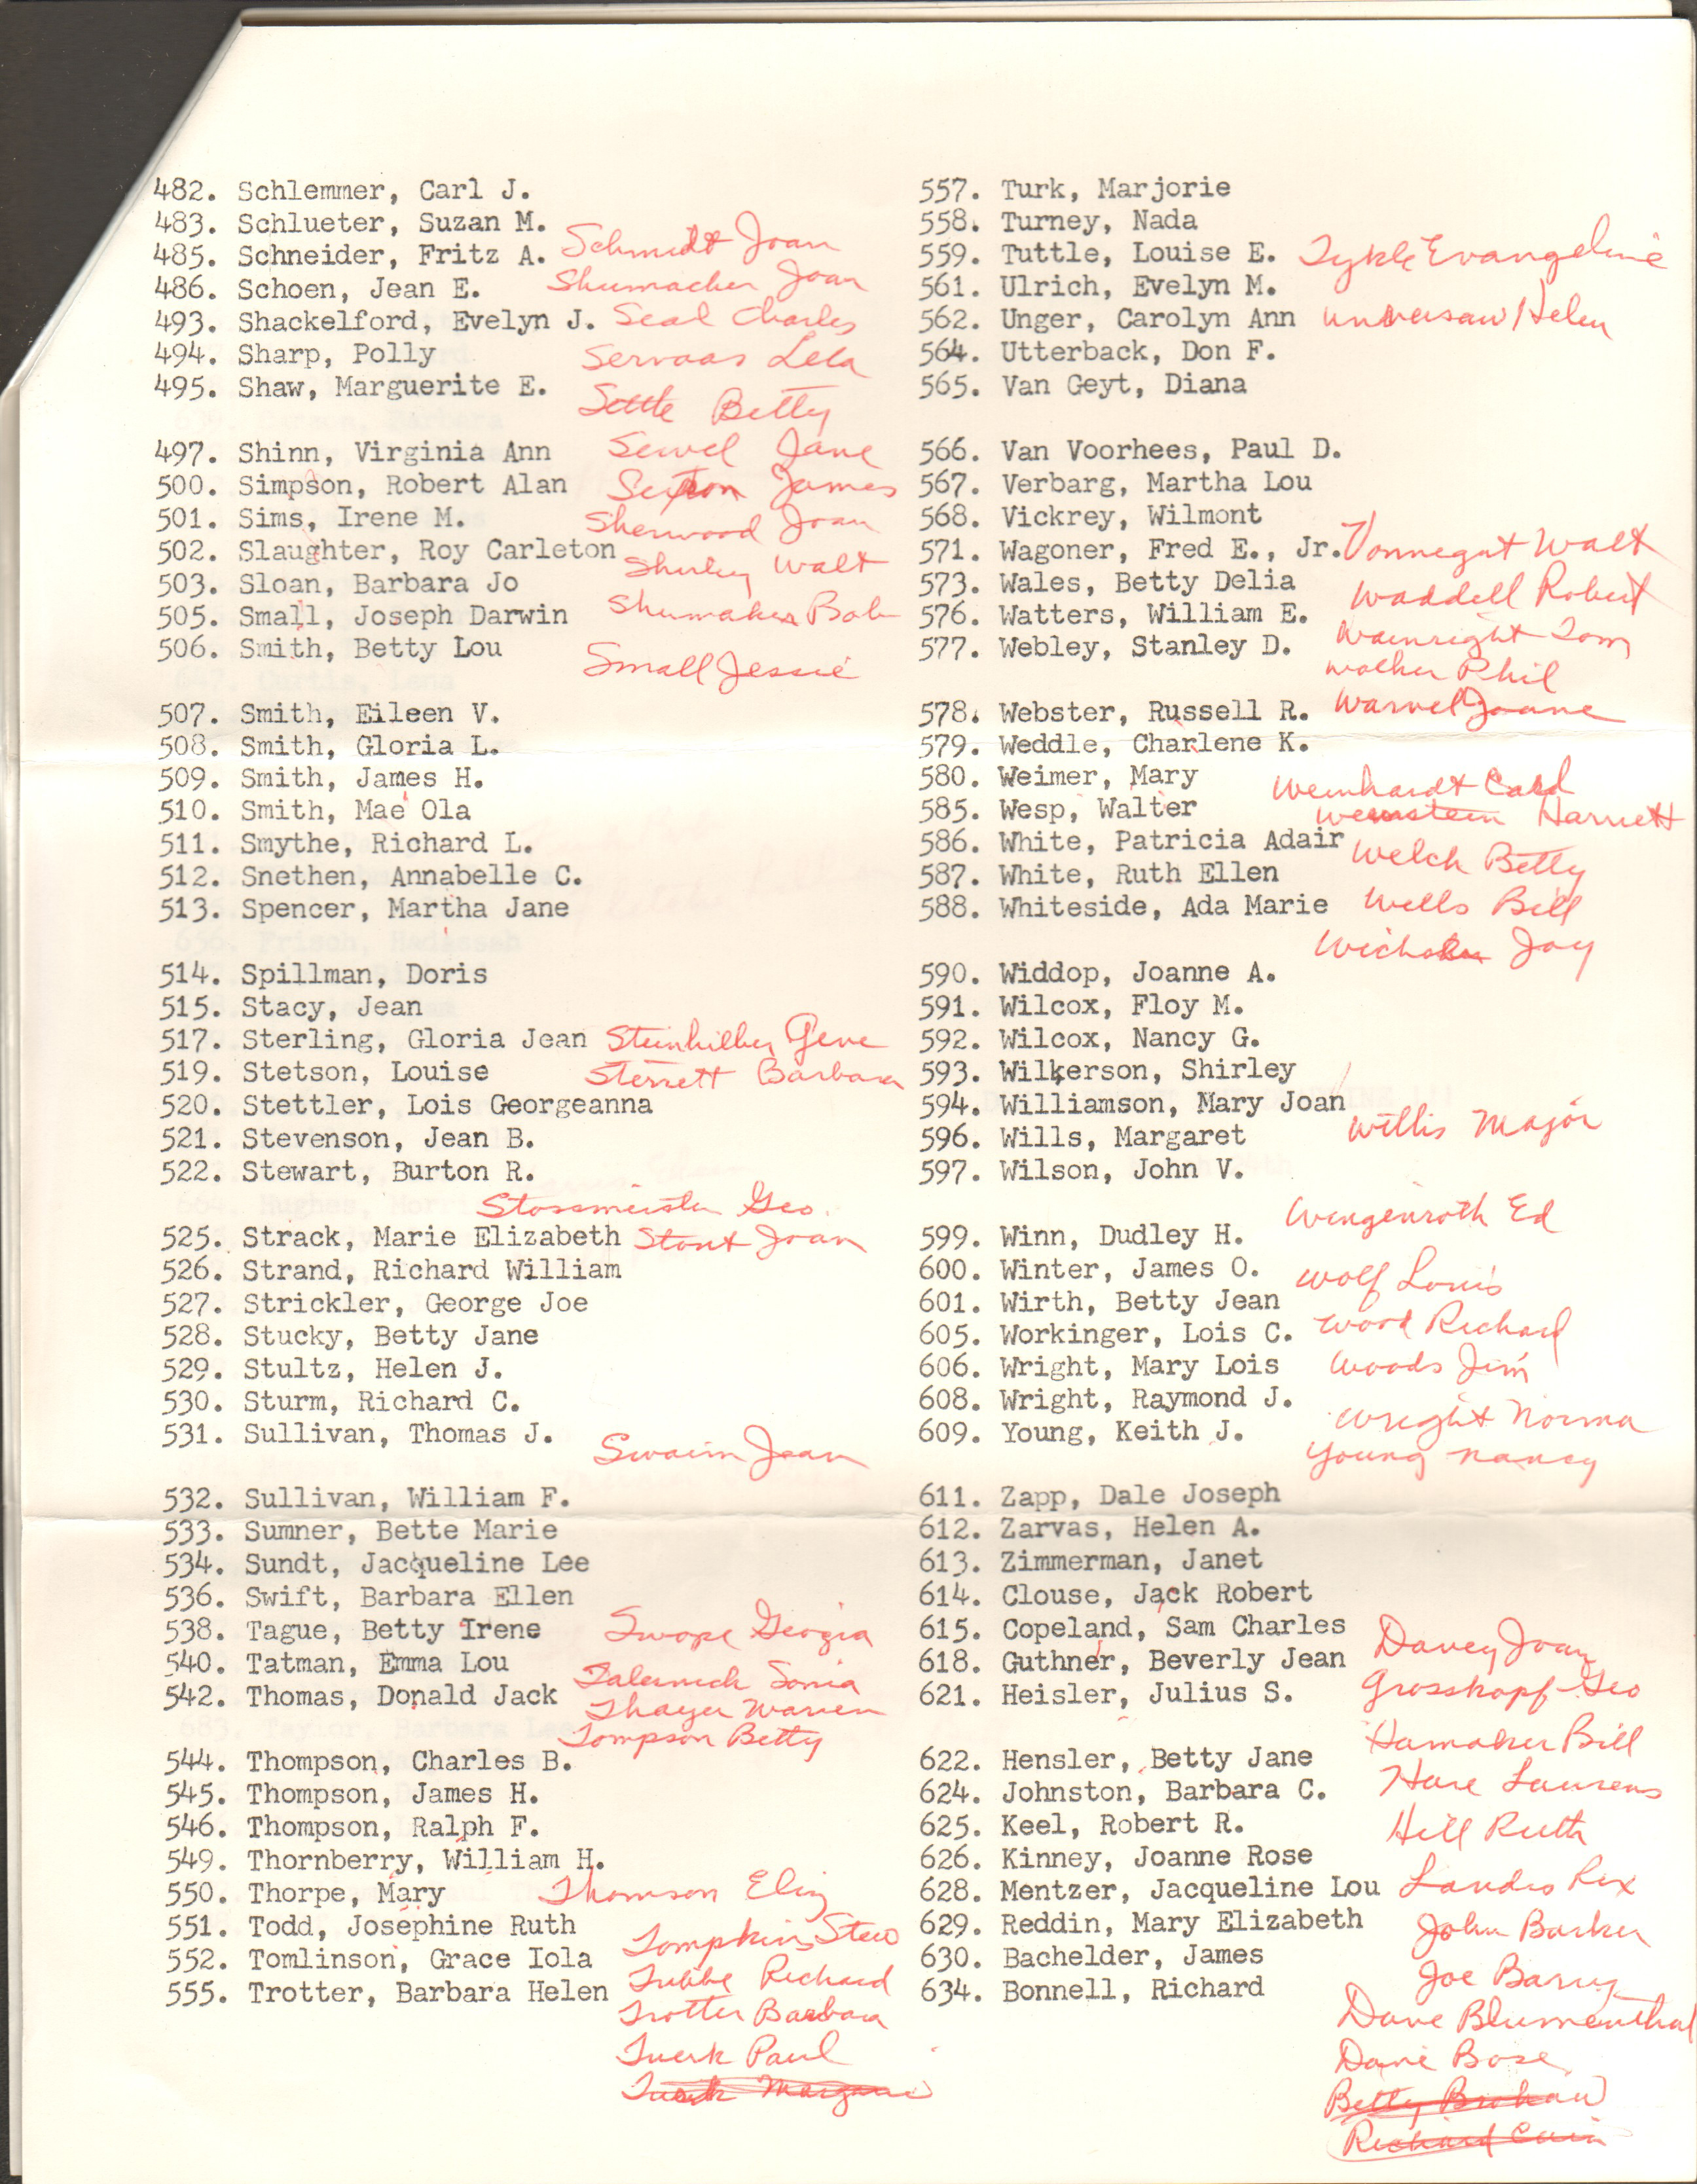 482. Schlemmer, Carl J.
483. Schlueter, Suzan M.
Schmidt Joan
485. Schneider, Fritz A.
486. Schoen, Jean E.
Shumacher Joan
493. Shackelford, Evelyn J.
Seal Charles
494. Sharp, Polly
Servaas Lela
495. Shaw, Marguerite E.
Settle Betty
497. Shinn, Virginia Ann
Sewel Jane
500. Simpson, Robert Alan
Sexton James
501. Sims, Irene M.
Sherwood Joan
502. Slaughter, Roy Carleton
Shirley Walt
503. Sloan, Barbara Jo
505. Small, Joseph Darwin
Shumaker Bob
506. Smith, Betty Lou
Small Jessie
507. Smith, Eileen V.
508. Smith, Gloria L.
509. Smith, James H.
510. Smith, Mae Ola
511. Smythe, Richard L.
512. Snethen, Annabelle C.
513. Spencer, Martha Jane
514. Spillman, Doris
515. Stacy, Jean
517. Sterling, Gloria Jean
Steinhilber Gene
519. Stetson, Louise
Sterrett Barbara
520. Stettler, Lois Georgeanna
521. Stevenson, Jean B.
522. Stewart, Burton R.
Stossmeister Geo.
525. Strack, Marie Elizabeth
Stout Joan
526. Strand, Richard William
527. Strickler, George Joe
528. Stucky, Betty Jane
529. Stultz, Helen J.
530. Sturm, Richard C.
531. Sullivan, Thomas J.
Swaim Jean
532. Sullivan, William F.
533. Sumner, Bette Marie
534. Sundt, Jacqueline Lee
536. Swift, Barbara Ellen
538. Tague, Betty Irene
Swope Georgia
540. Tatman, Emma Lou
Sonia
542. Thomas, Donald Jack
Thayer Warren
Tompson Betty
544. Thompson, Charles B.
545. Thompson, James H.
546. Thompson, Ralph F.
549. Thornberry, William H.
550. Thorpe, Mary
Thomson Eliz
551. Todd, Josephine Ruth
Tompkins Stew
552. Tomlinson, Grace Iola
Tubbe Richard
555. Trotter, Barbara Helen
Trotter Barbara
Tuerk Paul
557. Turk, Marjorie
558. Turney, Nada
559. Tuttle, Louise E.
Tykle Evangeline
561. Ulrich, Evelyn M.
562. Unger, Carolyn Ann
Unversaw Helen
564. Utterback, Don F.
565. Van Geyt, Diana
566. Van Voorhees, Paul D.
567. Verbarg, Martha Lou
568. Vickrey, Wilmont
571. Wagoner, Fred E., Jr.
Vonnegut Walt
573. Wales, Betty Delia
Waddell Robert
576. Watters, William E.
Wainright Tom
577. Webley, Stanley D.
Walker Phil
578. Webster, Russell R.
Warvel Joane
579. Weddle, Charlene K.
580. Weimer, Mary
Weinhardt Carl
585. Wesp, Walter
Weinstein Harriett
586. White, Patricia Adair
Welch Betty
587. White, Ruth Ellen
588. Whiteside, Ada Marie
Wells Bill
Joy
590. Widdop, Joanne A.
591. Wilcox, Floy M.
592. Wilcox, Nancy G.
593. Wilkerson, Shirley
594. Williamson, Mary Joan
Willis Major
596. Wills, Margaret
597. Wilson, John V.
Wingenroth Ed
599. Winn, Dudley H.
600. Winter, James O.
Wolf Louis
601. Wirth, Betty Jean
605. Workinger, Lois C.
Wood Richard
606. Wright, Mary Lois
Woods Jim
608. Wright, Raymond J.
Wright Norma
609. Young, Keith J.
Young Nancy
611. Zapp, Dale Joseph
612. Zarvas, Helen A.
613. Zimmerman, Janet
614. Clouse, Jack Robert
615. Copeland, Sam Charles
Davey Joan
618. Guthner, Beverly Jean
Grosskopf Geo
621. Heisler, Julius S.
Hamaker Bill
622. Hensler, Betty Jane
Hare Laurens
624. Johnston, Barbara C.
625. Keel, Robert R.
Hill Ruth
626. Kinney, Joanne Rose
628. Mentzer, Jacqueline Lou
Landis Rex
629. Reddin, Mary Elizabeth
John Barker
630. Bachelder, James
Joe Barry
634. Bonnell, Richard
Dave Blumenthal
Dave Bose
Betty Brokaw
Richard Cain